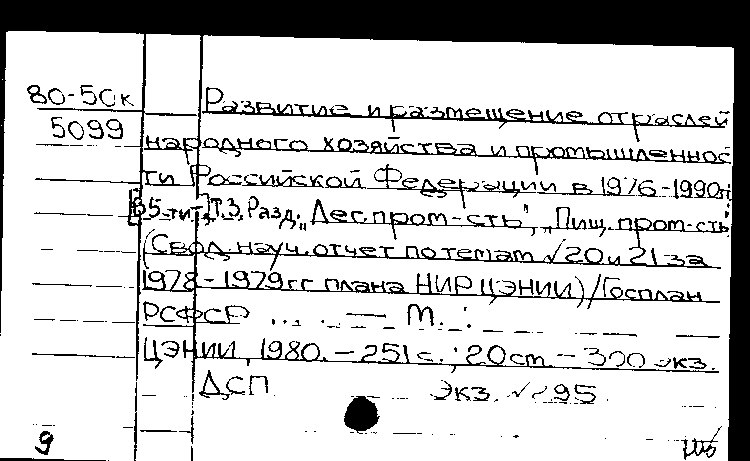 80-5Ок Развитие и размещение отраслей
5099 народного хозяйства и промышленнос
ти Российской Федерации в 1976-1990гг
[В 5-ти т.] Т.3. Разд. „Лес.пром-сть", „Пищ. пром-сть"
(Свод. науч. отчет по темам №20 и 21 за
1978-1979гг плана НИР ЦЭНИИ)/Госплан
РСФСР ... . — М. :
ЦЭНИИ, 1980. - 251 с.; 20 см. - 300 экз.
ДСП Экз. № 295
9